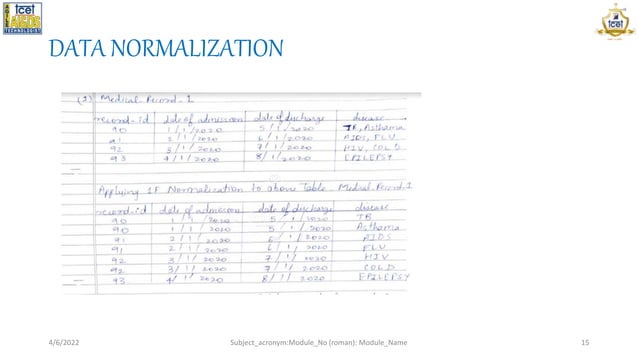 tcet
AI&DS
TECHNOLOGIST
tcet
DATA NORMALIZATION
(2) Medical Record_1
record_id date of admission date of discharge disease
90 1/1/2020 5/1/2020 TB, Asthama
91 2/1/2020 6/1/2020 AIDS, FLU
92 3/1/2020 7/1/2020 HIV, COLD
93 4/1/2020 8/1/2020 EPILEPSY
Applying 1F Normalization to above Table Medical Record 1
record_id date of admission date of discharge disease
90 1/1/2020 5/1/2020 TB
90 1/1/2020 5/1/2020 Asthama
91 2/1/2020 6/1/2020 AIDS
91 2/1/2020 6/1/2020 FLU
92 3/1/2020 7/1/2020 HIV
92 3/1/2020 7/1/2020 COLD
93 4/1/2020 8/1/2020 EPILEPSY
4/6/2022 Subject_acronym:Module_No (roman): Module_Name 15